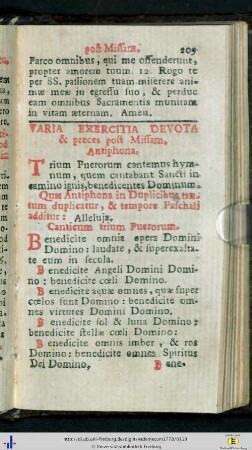 post Missam. 209
Parco omnibus, qui me offenderunt,
propter amorem tuum. 12. Rogo te
per SS. passionem tuam miserere ani-
mæ meæ in egressu suo, & perduc
eam omnibus Sacramentis munitam
in vitam æternam. Amen.
VARIA EXERCITIA DEVOTA
& preces post Missam,
Antiphona.
Trium Puerorum cantemus hym-
num, quem cantabant Sancti in
camino ignis, benedicentes Dominum.
Quæ Antiphona in Duplicibus tan-
tum duplicatur, & tempore Paschali
additur: Alleluja.
Canticum trium Puerorum.
Benedicite omnia opera Domini
Domino: laudate, & superexalta-
te eum in secula.
Benedicite Angeli Domini Domi-
no: benedicite cœli Domino.
Benedicite aquæ omnes, quæ super
cœlos sunt Domino: benedicite om-
nes virtutes Domini Domino.
Benedicite sol & luna Domino:
benedicite stellæ cœli Domino:
Benedicite omnis imber, & ros
Domino: benedicite omnes Spiritus
Dei Domino, Bene-
© Universitätsbibliothek Freiburg